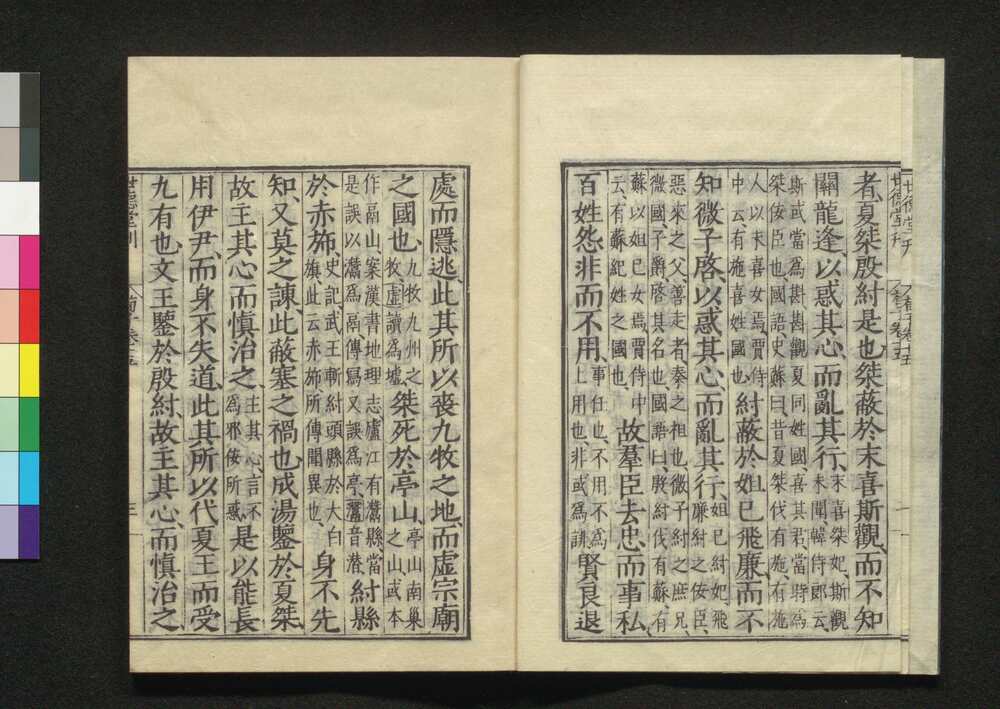 者、夏桀殷紂是也、桀蔽於末喜斯觀、而不知
關龍逢、以惑其心、而亂其行、末喜桀妃、斯觀未聞韓侍郎云、
斯或當爲斟斟觀夏同姓國、喜其君、當時爲桀佞臣也、國語史蘇曰、昔夏桀伐有施、有施
人以末喜女焉、賈侍中云、有施喜姓國也、紂蔽於妲己飛廉、而不
知微子啓、以惑其心、而亂其行、妲己紂妃、飛廉紂之佞臣、
惡來之父、善走者、秦之祖也、微子紂之庶兄、微國子爵、啓其名也、國語曰、殷紂伐有蘇、有
蘇以妲己女焉、賈侍中云、有蘇紀姓之國也、故羣臣去忠而事私、
百姓怨非而不用、事任也、不用不爲上用也、非或爲誹、賢良退
處而隱逃、此其所以喪九牧之地、而虛宗廟
之國也、九牧九州之牧、虛讀爲墟、桀死於亭山、亭山南巢之山、或本
作鬲山、案漢書地理志廬江有灊縣、當是誤以灊爲鬲、傳寫又誤爲亭、灊音潛、紂縣
於赤旆、史記、武王斬紂頭縣於大白旗、此云赤旆所傳聞異也、身不先
知、又莫之諫、此蔽塞之禍也、成湯鑒於夏桀
故主其心、而愼治之、主其心、言不爲邪佞所惑、是以能長
用伊尹、而身不失道、此其所以代夏王而受
九有也、文王鑒於殷紂、故主其心、而愼治之